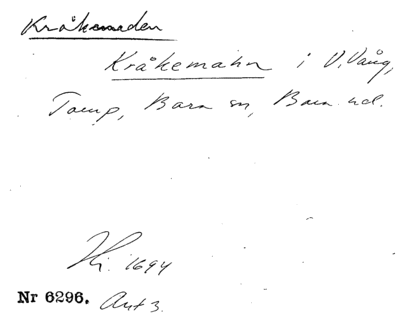 Kråkemaden
Kråkemahn i V. Vång,
Torup, Bara sn, Bara hd.
Hi. 1694
Nr 6296. Ant 3.